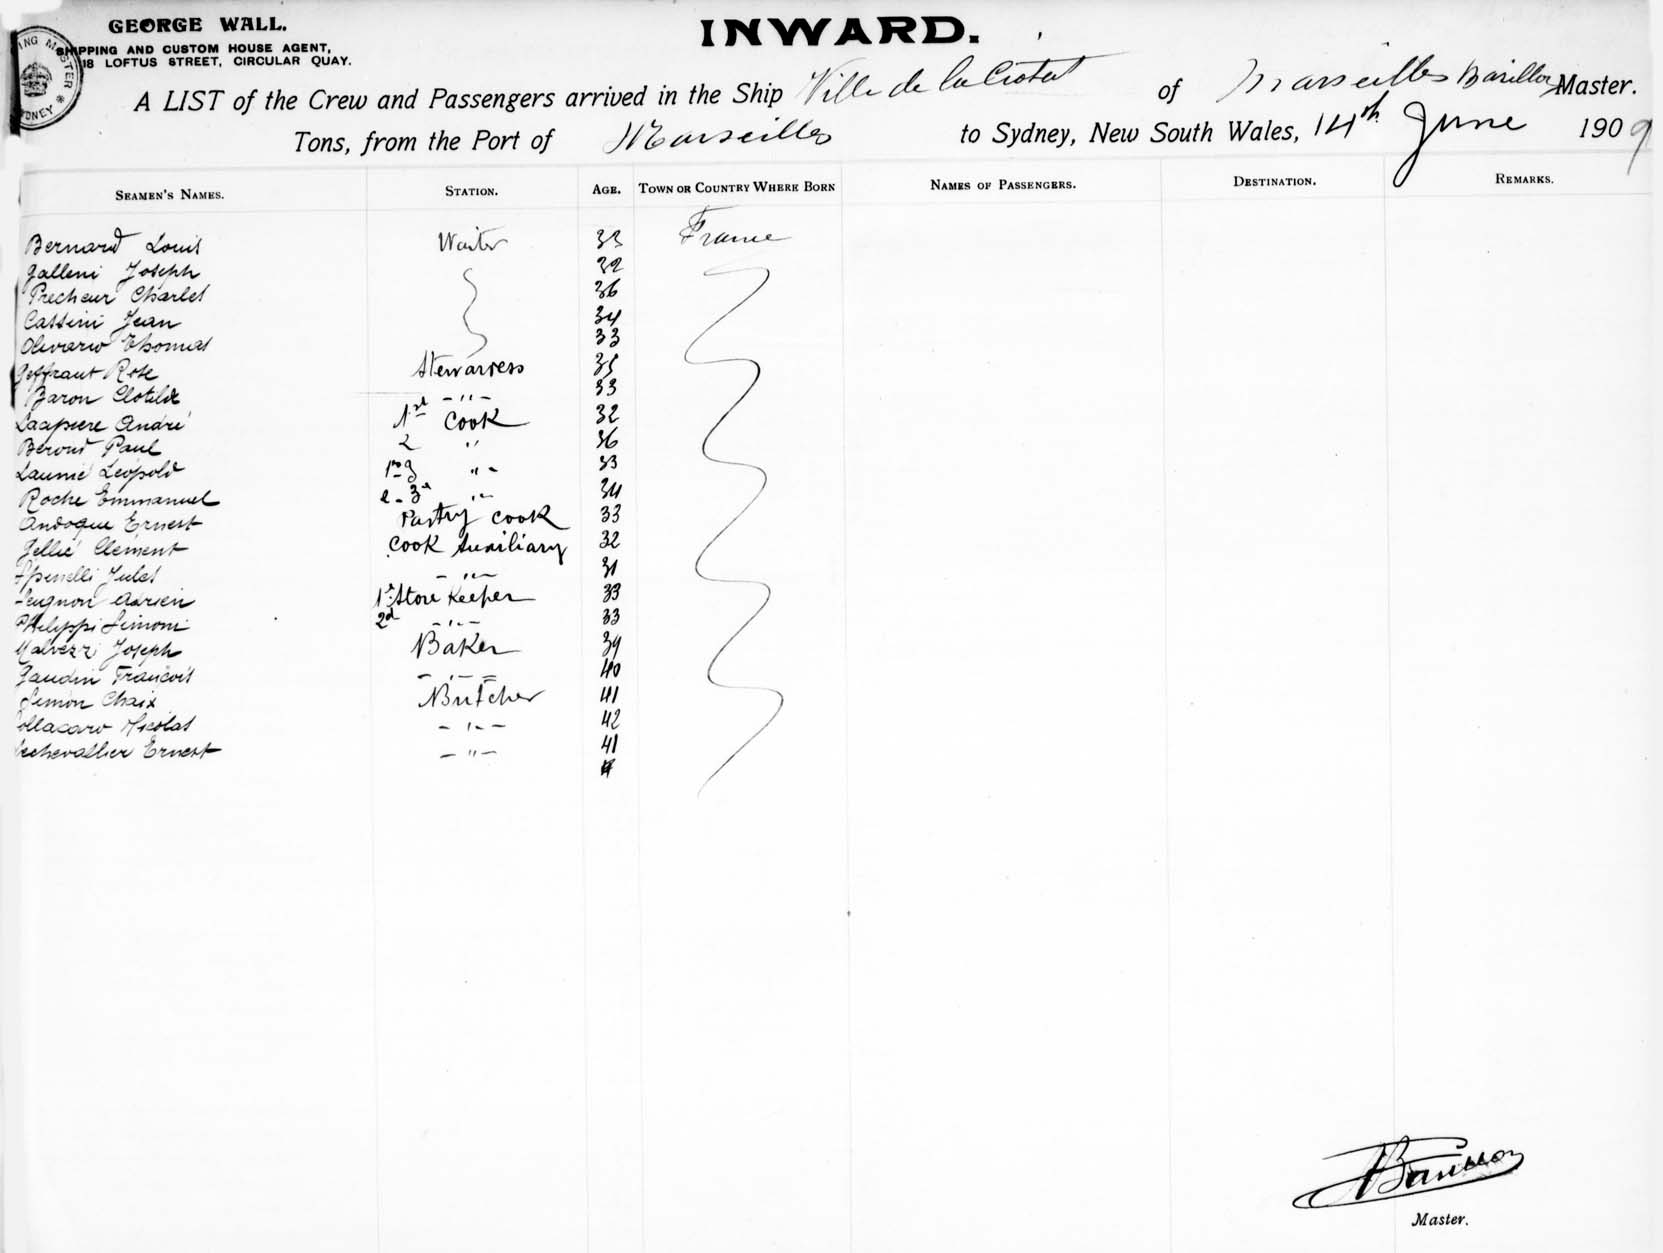 GEORGE WALL.
SHIPPING AND CUSTOM HOUSE AGENT,
18 LOFTUS STREET, CIRCULAR QUAY.
INWARD.
A LIST of the Crew and Passengers arrived in the Ship Ville de la Ciotat of Marseilles Barillon Master.
Tons, from the Port of Marseilles to Sydney, New South Wales, 14th June 1909
SEAMEN'S NAMES. STATION. AGE. TOWN OR COUNTRY WHERE BORN NAMES OF PASSENGERS. DESTINATION. REMARKS.
Bernard Louis Waiter 33 France
Galleni Joseph 32
Precheur Charles 36
Cassini Jean 34
Olivario Thomas 33
Geffraut Rose Stewarress 35
Baron Clotilde -"- 33
André 1st Cook 32
Beroud Paul 2 " 36
Launié Léopold "- 33
Roche Emmanuel "- 34
Andoque Ernest Pastry cook 33
Jellié Clément Cook Auxiliary 32
Spinelli Jules -"- 31
Adrien 1st Store Keeper 33
Philippi Simoni 2d -"- 33
Malvezzi Joseph Baker 39
Gaudin Francois -"- 40
Simon Chaix Butcher 41
ollacaro Nicolas -"- 42
echevallier Ernest -"- 41
Master.